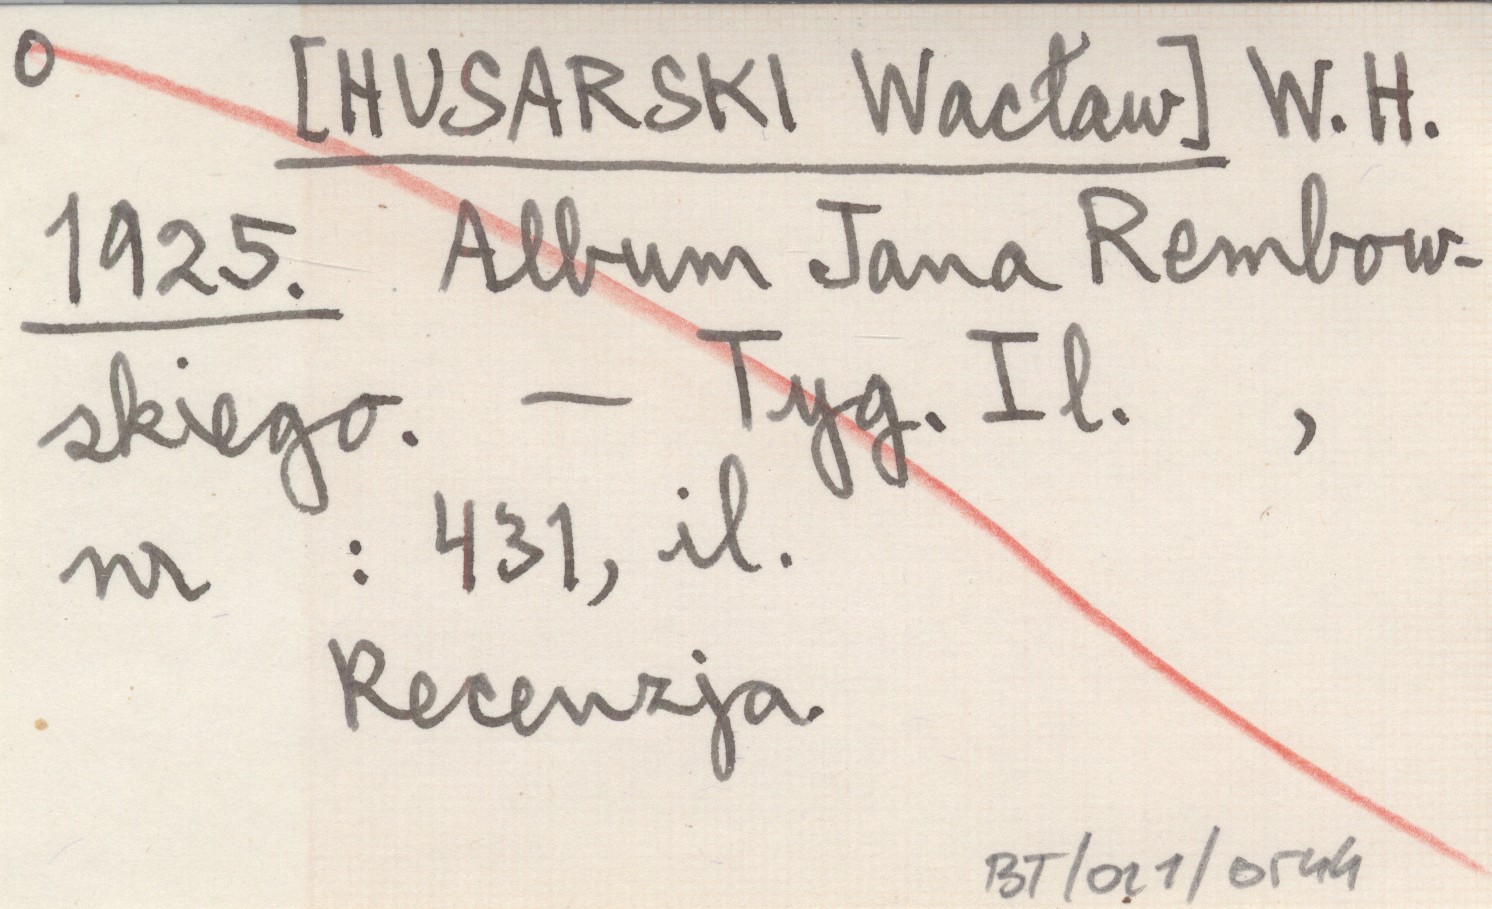 o [HUSARSKI Wacław] W.H.
1925. Album Jana Rembow-
skiego. — Tyg. Il. ,
nr : 431, il.
Recenzja.